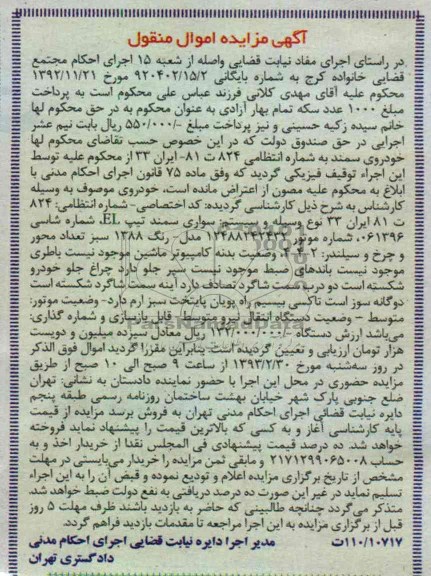 آگهی مزایده اموال منقول
در راستای اجرای مفاد نیابت قضایی واصله از شعبه ۱۵ اجرای احکام مجتمع
قضایی خانواده کرج به شماره بایگانی ۹۲۰۴۰۲/۱۵/۲ مورخ ۱۳۹۲/۱۱/۲۱
محکوم علیه آقای مهدی کلانی فرزند عباس علی محکوم است به پرداخت
مبلغ ۱۰۰۰ عدد سکه تمام بهار آزادی به عنوان محکوم به در حق محکوم لها
خانم سیده زکیه حسینی و نیز پرداخت مبلغ ۵۵۰/۰۰۰/- ریال بابت نیم عشر
اجرایی در حق صندوق دولت که در این خصوص حسب تقاضای محکوم لها
خودروی سمند به شماره انتظامی ۸۲۴ ت ۸۱- ایران ۳۳ از محکوم علیه توسط
این اجراء توقیف فیزیکی گردید که وفق ماده ۷۵ قانون اجرای احکام مدنی با
ابلاغ به محکوم علیه مصون از اعتراض مانده است، خودروی موصوف به وسیله
کارشناس به شرح ذیل کارشناسی گردیده: کد اختصاصی-شماره انتظامی: ۸۲۴
ت ۸۱ ایران ۳۳ نوع وسیله و سیستم: سواری سمند تیپ EL، شماره شاسی
۰۶۱۳۹۶، شماره موتور ۱۲۴۸۸۲۴۲۴۳۳ مدل- رنگ ۱۳۸۸ سبز تعداد محور
و چرخ و سیلندر: ۲ وضعیت بدنه کامپیوتر ماشین موجود نیست باطری
موجود نیست باندهای ضبط موجود نیست سپر جلو دارد چراغ جلو خودرو
شکسته است دو درب سمت شاگرد تصادف دارد آینه سمت شاگرد شکسته است
دوگانه سوز است تاکسی بیسیم راه پویان پایتخت سبز آرم دارد- وضعیت موتور:
متوسط - وضعیت دستگاه انتقال نیرو متوسط- قابل بازسازی و شماره گذاری:
می‌باشد ارزش دستگاه -/۱۳۲/۰۰۰/۰۰۰ ریال معادل سیزده میلیون و دویست
هزار تومان ارزیابی و تعیین گردیده است. بنابراین مقررا گردید اموال فوق الذکر
در روز سه‌شنبه مورخ ۱۳۹۳/۲/۳۰ از ساعت ۹ صبح الی ۱۰ صبح از طریق
مزایده حضوری در محل این اجرا با حضور نماینده دادستان به نشانی: تهران
ضلع جنوبی پارک شهر خیابان بهشت ساختمان روزنامه رسمی طبقه پنجم
دایره نیابت قضائی اجرای احکام مدنی تهران به فروش برسد مزایده از قیمت
پایه کارشناسی آغاز و به کسی که بالاترین قیمت را پیشنهاد نماید فروخته
خواهد شد. ده درصد قیمت پیشنهادی فی المجلس نقدا از خریدار اخذ و به
حساب ۲۱۷۱۲۹۹۰۶۵۰۰۸ و مابقی ثمن مزایده را خریدار می‌بایستی در مهلت
مشخص از تاریخ برگزاری مزایده اعلام و تودیع نموده و قبض آن را به این اجراء
تسلیم نماید در غیر این صورت ده درصد دریافتی به نفع دولت ضبط خواهد شد.
متذکر می‌گردد چنانچه طالبینی که حاضر به بازدید باشند ظرف مهلت ۵ روز
قبل از برگزاری مزایده به این اجرا مراجعه تا مقدمات بازدید فراهم گردد.
۱۱۰/۱۰۷۱۷ت مدیر اجرا دایره نیابت قضایی اجرای احکام مدنی
دادگستری تهران